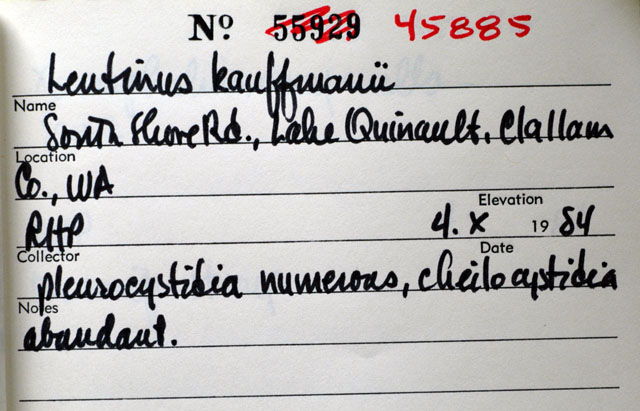 Nº 55929 45885
Lentinus kauffmanii
Name
South Shore Rd., Lake Quinault, Clallam
Location
Co., WA
Elevation
RHP 4. X 19 84
Collector Date
pleurocystidia numerous, cheilocystidia
Notes
abundant.